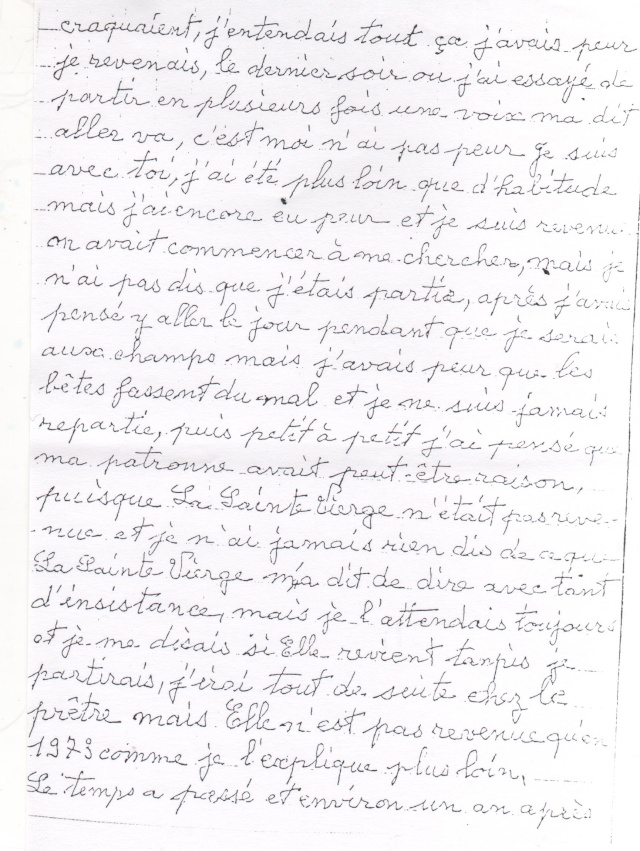 craquaient, j'entendais tout ça j'avais peur
je revenais, le dernier soir ou j'ai essayé de
partir en plusieurs fois une voix ma dit
aller va, c'est moi n'ai pas peur je suis
avec toi, j'ai été plus loin que d'habitude
mais j'ai encore eu peur et je suis revenue
on avait commencer à me chercher, mais je
n'ai pas dis que j'étais partie, après j'avais
pensé y aller le jour pendant que je serais
aux champs mais j'avais peur que les
bêtes fassent du mal et je ne suis jamais
repartie, puis petit à petit j'ai pensé que
ma patronne avait peut-être raison,
puisque La Sainte Vierge n'était pas reve-
-nue et je n'ai jamais rien dis de ce que
La Sainte Vierge m'a dit de dire avec tant
d'insistance, mais je l'attendais toujours
et je me disais si Elle revient tanpis je
partirais, j'irai tout de suite chez le
prêtre mais Elle n'est pas revenue qu'en
1973 comme je l'explique plus loin,
Le temps a passé et environ un an après